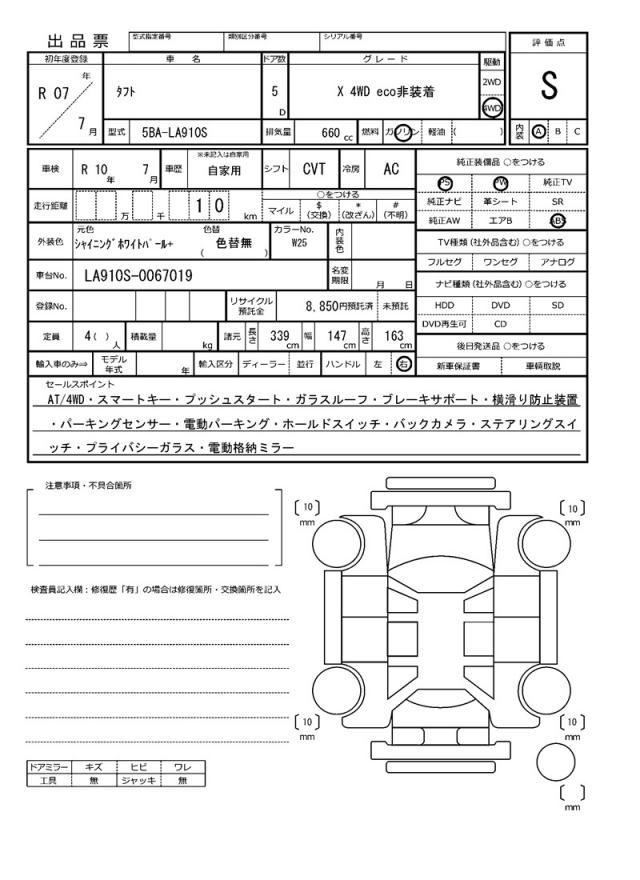 出品票
型式指定番号 類別区分番号 シリアル番号
評価点
S
初年度登録 車名 ドア数 グレード 駆動
R 07 年 7 月
タフト 5 D X 4WD eco非装着 2WD
4WD
型式 5BA-LA910S 排気量 660 cc 燃料 ガソリン 軽油 ( )
内装 A B C
車検 R 10 年 7 月 車歴 ※未記入は自家用 自家用 シフト CVT 冷房 AC
走行距離 万 千 1 0 km
○をつける
マイル $(交換) *(改ざん) #(不明)
外装色 元色 シャイニングホワイトパール+ 色替 ( 色替無 ) カラーNo. W25 内装色
車台No. LA910S-0067019 名変期限 月 日
登録No. リサイクル預託金 8,850円預託済 未預託
定員 4( ) 人 積載量 kg 諸元 長さ 339 cm 幅 147 cm 高さ 163 cm
輸入車のみ⇒ モデル年式 年 輸入区分 ディーラー 並行 ハンドル 左 右
純正装備品 ○をつける
PS PW 純正TV
純正ナビ 革シート SR
純正AW エアB ABS
TV種類 (社外品含む) ○をつける
フルセグ ワンセグ アナログ
ナビ種類 (社外品含む) ○をつける
HDD DVD SD
DVD再生可 CD
後日発送品 ○をつける
新車保証書 車輌取説
セールスポイント
AT/4WD・スマートキー・プッシュスタート・ガラスルーフ・ブレーキサポート・横滑り防止装置
・パーキングセンサー・電動パーキング・ホールドスイッチ・バックカメラ・ステアリングスイ
ッチ・プライバシーガラス・電動格納ミラー
注意事項・不具合箇所
検査員記入欄:修復歴「有」の場合は修復箇所・交換箇所を記入
ドアミラー キズ ヒビ ワレ
工具 無 ジャッキ 無
[ 10 ] mm
[ 10 ] mm
[ 10 ] mm
[ 10 ] mm
[ ] mm